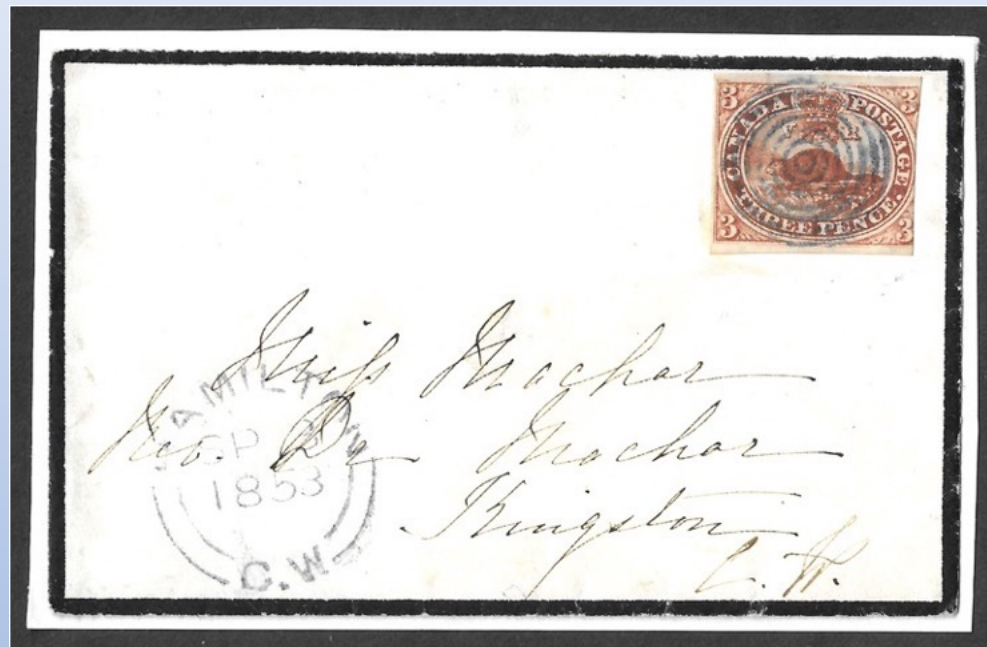 3 CANADA POSTAGE. 3
3 THREE PENCE. 3
Miss Machar
Rev. Dr Machar
Kingston
C. W.
HAMILTON
SP
1853
C.W.